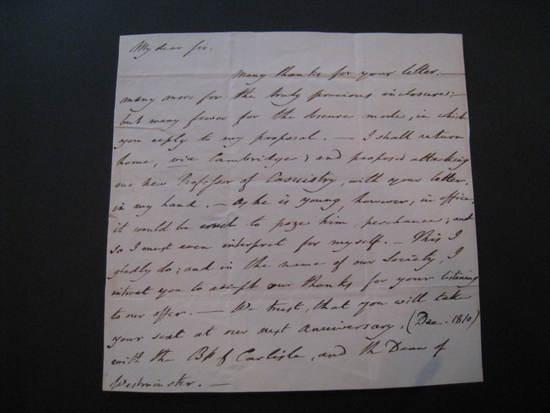 My dear Sir.
Many thanks for your letter. —
many more for the truly precious inclosures;
but many fewer for the obscure mode, in which
you reply to my proposal. — I shall return
home, via Cambridge; and propose attacking
our new Professor of Casuistry, with your letter,
in my hand. — As he is young, however, in office,
it would be cruel to poze him, perchance; and
so I must even interpret for myself. — This I
gladly do; and in the name of our Society, I
intreat you to accept our thanks for your listening
to our offer. — We trust, that you will take
your seat at our next anniversary, (Dec. 1810)
with the Bp of Carlisle, and the Dean of
Westminster. —